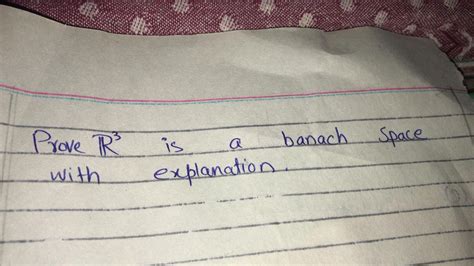 Prove ℝ³ is a banach Space
with explanation.